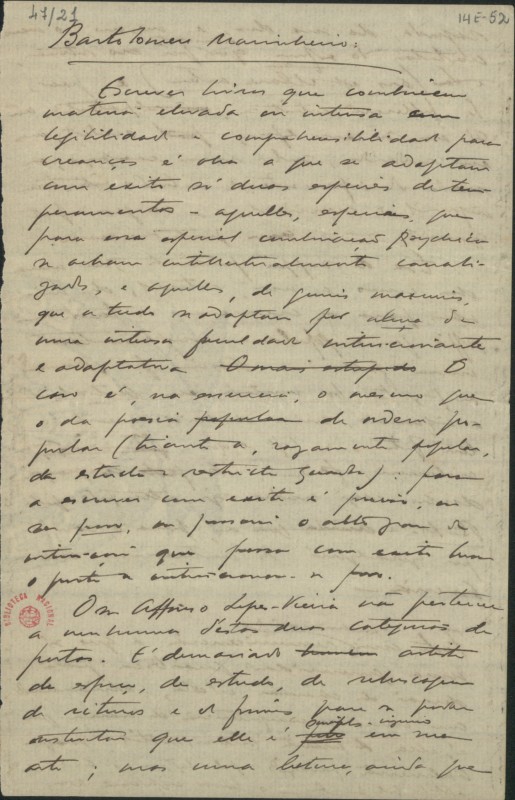 47/21
14E-52
Bartolomeu Marinheiro:
Escrever livros que combinem
materia elevada ou intensa com
legibilidade e comprehensibilidade para
creanças é obra a que se adaptam
com exito só duas especies de tem-
peramentos - aquelles, especiaes, que
para essa especial combinação psychica
se acham intellectualmente canali-
zados, e aquelles, de genios maximos,
que a tudo se adaptam por
uma intensa faculdade
e adaptativa O mais estupido O
caso é, na essencia, o mesmo que
o da poesia popular de ordem po-
pular (
de : para
a escrever com exito é preciso, ou
ser povo, ou possuir o alto grau de
intuição que possa com exito levar
o poeta a povo.
O sr Affonso Lopes-Vieira não pertence
a nenhuma destas duas categorias de
poetas. É demasiado homem artista
de esforço, de estudo, de rebusca
de rithmos e de frases para se poder
que elle é em sua
arte; mas uma leitura, ainda que
BIBLIOTECA NACIONAL